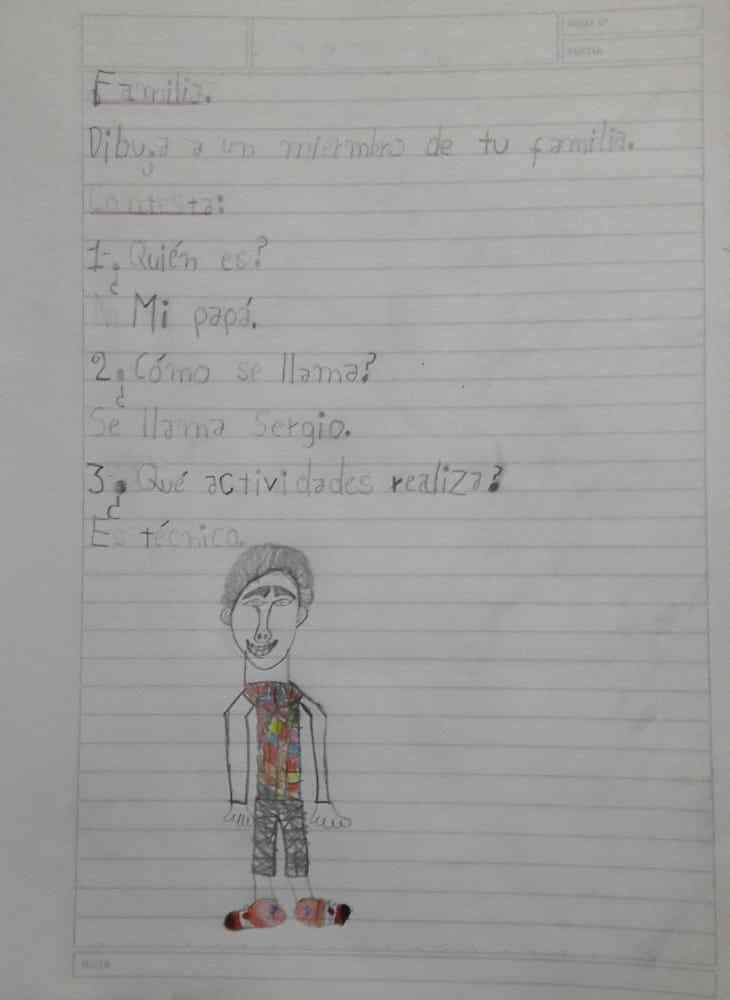 Familia.
Dibuja a un miembro de tu familia.
Contesta:
1-¿Quién es?
Mi papá.
2¿Cómo se llama?
Se llama Sergio.
3-¿Qué actividades realiza?
Es técnico.